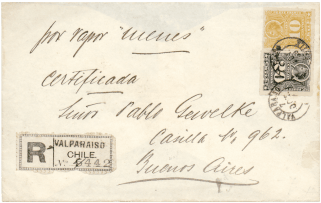 por vapor "Menes"
Certificada
Señor Pablo Gewelke
Casilla No, 962.
Buenos Aires
R
VALPARAISO
CHILE.
No 6442
10
30
VALPARAISO